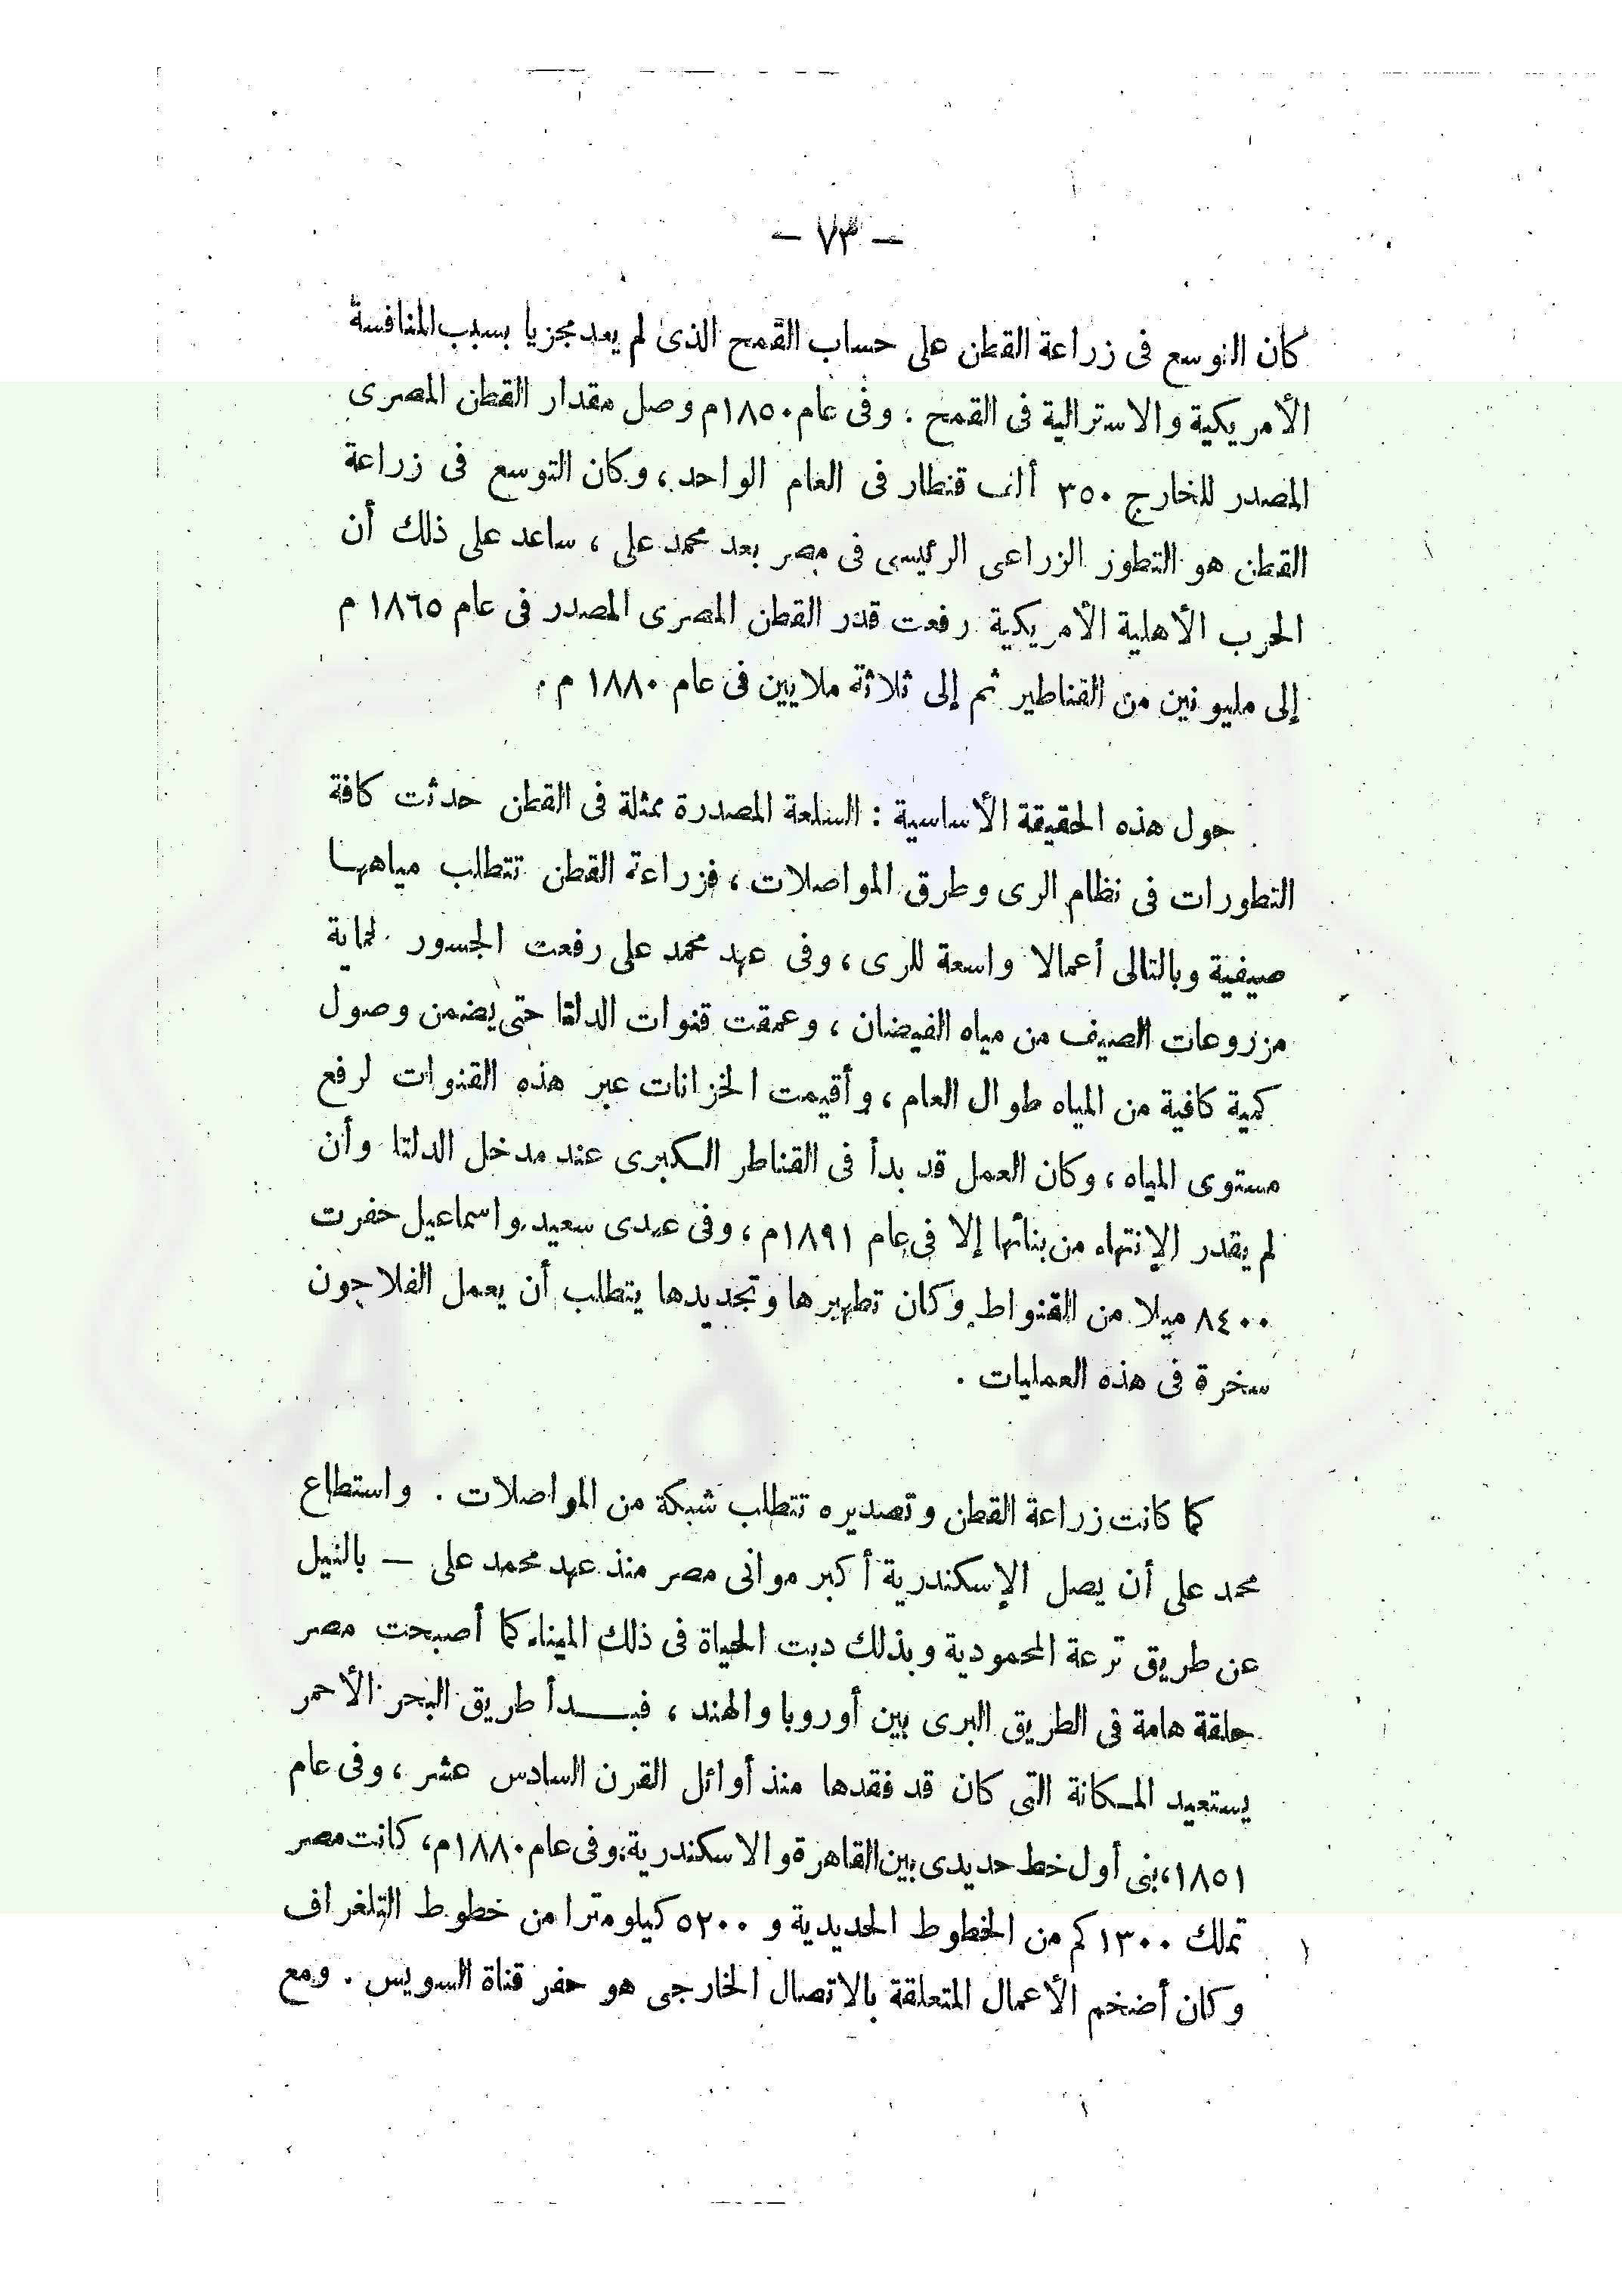 — ٧٣ —
كان التوسع فى زراعة القطن على حساب القمح الذى لم يعد مجزيا بسبب المنافسة
الأمريكية والاسترالية فى القمح . وفى عام ١٨٥٠م وصل مقدار القطن المصرى
المصدر للخارج ٣٥٠ ألف قنطار فى العام الواحد ، وكان التوسع فى زراعة
القطن هو التطور الزراعى الرئيسى فى مصر بعد محمد على ، ساعد على ذلك أن
الحرب الأهلية الأمريكية رفعت قدر القطن المصرى المصدر فى عام ١٨٦٥ م
إلى مليونين من القناطير ثم إلى ثلاثة ملايين فى عام ١٨٨٠ م .
حول هذه الحقيقة الأساسية : السلعة المصدرة ممثلة فى القطن حدثت كافة
التطورات فى نظام الرى وطرق المواصلات ، فزراعة القطن تتطلب مياهها
صيفية وبالتالى أعمالا واسعة للرى ، وفى عهد محمد على رفعت الجسور لحماية
مزروعات الصيف من مياه الفيضان ، وعمقت قنوات الدلتا حتى يضمن وصول
كمية كافية من المياه طوال العام ، وأقيمت الخزانات عبر هذه القنوات لرفع
مستوى المياه ، وكان العمل قد بدأ فى القناطر الكبرى عند مدخل الدلتا وأن
لم يقدر الإنتهاء من بنائها إلا فى عام ١٨٩١م ، وفى عهدى سعيد واسماعيل حفرت
٨٤٠٠ ميلا من القنواط وكان تطهيرها وتجديدها يتطلب أن يعمل الفلاحون
سخرة فى هذه العمليات .
كما كانت زراعة القطن وتصديره تتطلب شبكة من المواصلات . واستطاع
محمد على أن يصل الإسكندرية أكبر موانى مصر منذ عهد محمد على — بالنيل
عن طريق ترعة المحمودية وبذلك دبت الحياة فى ذلك الميناء كما أصبحت مصر
حلقة هامة فى الطريق البرى بين أوروبا والهند ، فبـــدأ طريق البحر الأحمر
يستعيد المكانة التى كان قد فقدها منذ أوائل القرن السادس عشر ، وفى عام
١٨٥١، بنى أول خط حديدى بين القاهرة والاسكندرية، وفى عام ١٨٨٠م، كانت مصر
تملك ١٣٠٠ كم من الخطوط الحديدية و ٥٢٠٠ كيلومترا من خطوط التلغراف
وكان أضخم الأعمال المتعلقة بالاتصال الخارجى هو حفر قناة السويس . ومع